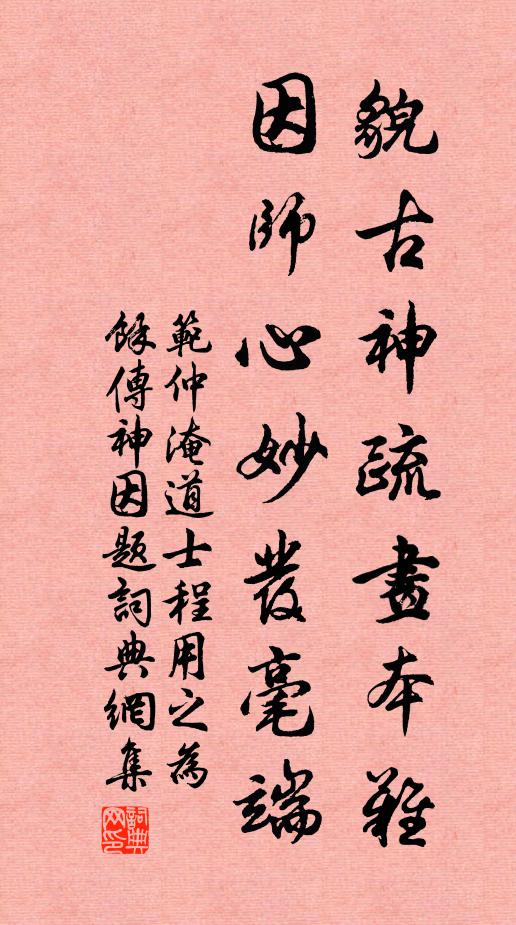 貌古神疏畫本難
因師心妙發毫端
範仲淹道士程用之為
餘傳神因題詞典網集
詞典
网印